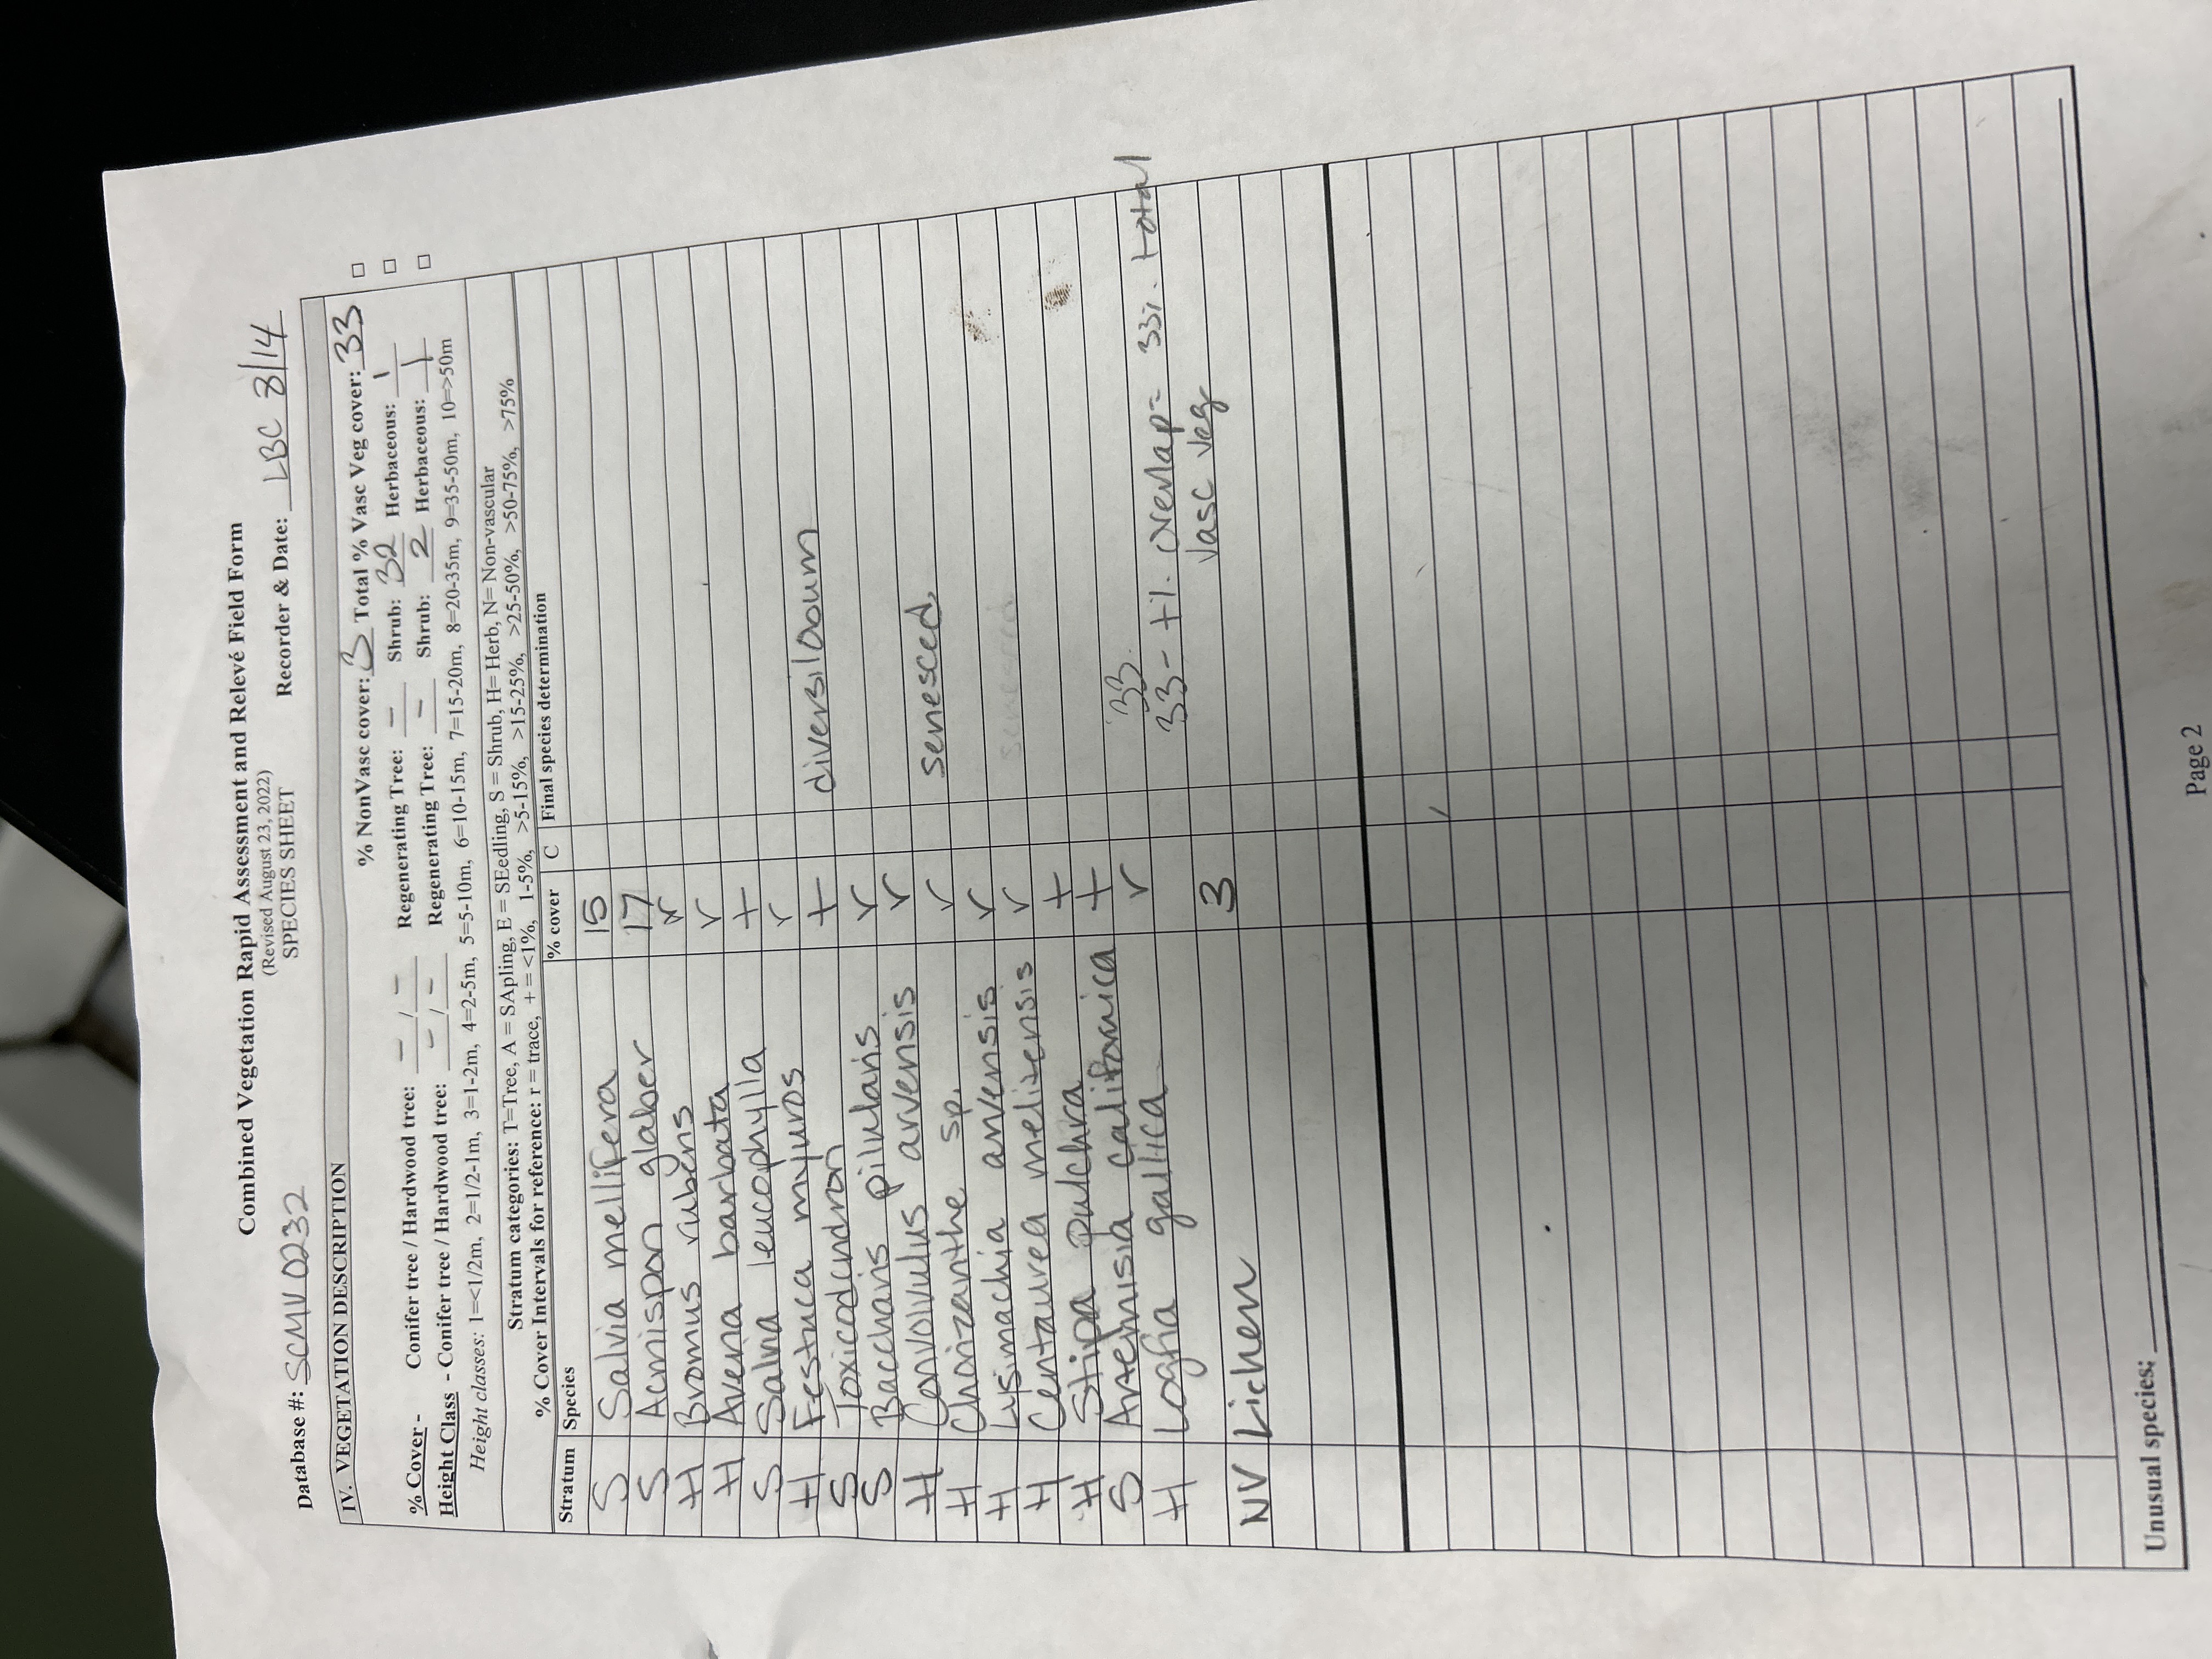 Combined Vegetation Rapid Assessment and Relevé Field Form
(Revised August 23, 2022)
SPECIES SHEET
Database #: SCMV0232 Recorder & Date: LBC 8/14
IV. VEGETATION DESCRIPTION
% NonVasc cover: 3 Total % Vasc Veg cover: 33 □
% Cover - Conifer tree / Hardwood tree: - / - Regenerating Tree: - Shrub: 32 Herbaceous: 1 □
Height Class - Conifer tree / Hardwood tree: - / - Regenerating Tree: - Shrub: 2 Herbaceous: 1 □
Height classes: 1=<1/2m, 2=1/2-1m, 3=1-2m, 4=2-5m, 5=5-10m, 6=10-15m, 7=15-20m, 8=20-35m, 9=35-50m, 10=>50m
Stratum categories: T=Tree, A = SApling, E = SEedling, S = Shrub, H= Herb, N= Non-vascular
% Cover Intervals for reference: r = trace, + = <1%, 1-5%, >5-15%, >15-25%, >25-50%, >50-75%, >75%
Stratum Species % cover C Final species determination
S Salvia mellifera 15
S Acmispon glaber 17
H Bromus rubens r
H Avena barbata r
S Salvia leucophylla +
H Festuca myuros r
S Toxicodendron + diversiloбum
S Baccharis pilularis r
H Convolvulus arvensis r
H Chorizanthe sp. r senesced.
H Lysimachia arvensis r
H Centaurea melitensis r senesced
H Stipa pulchra +
S Artemisia californica +
H Logfia gallica r 33
33 - +%. overlap = 33%. total
vasc veg
NV Lichen 3
Unusual species:
Page 2